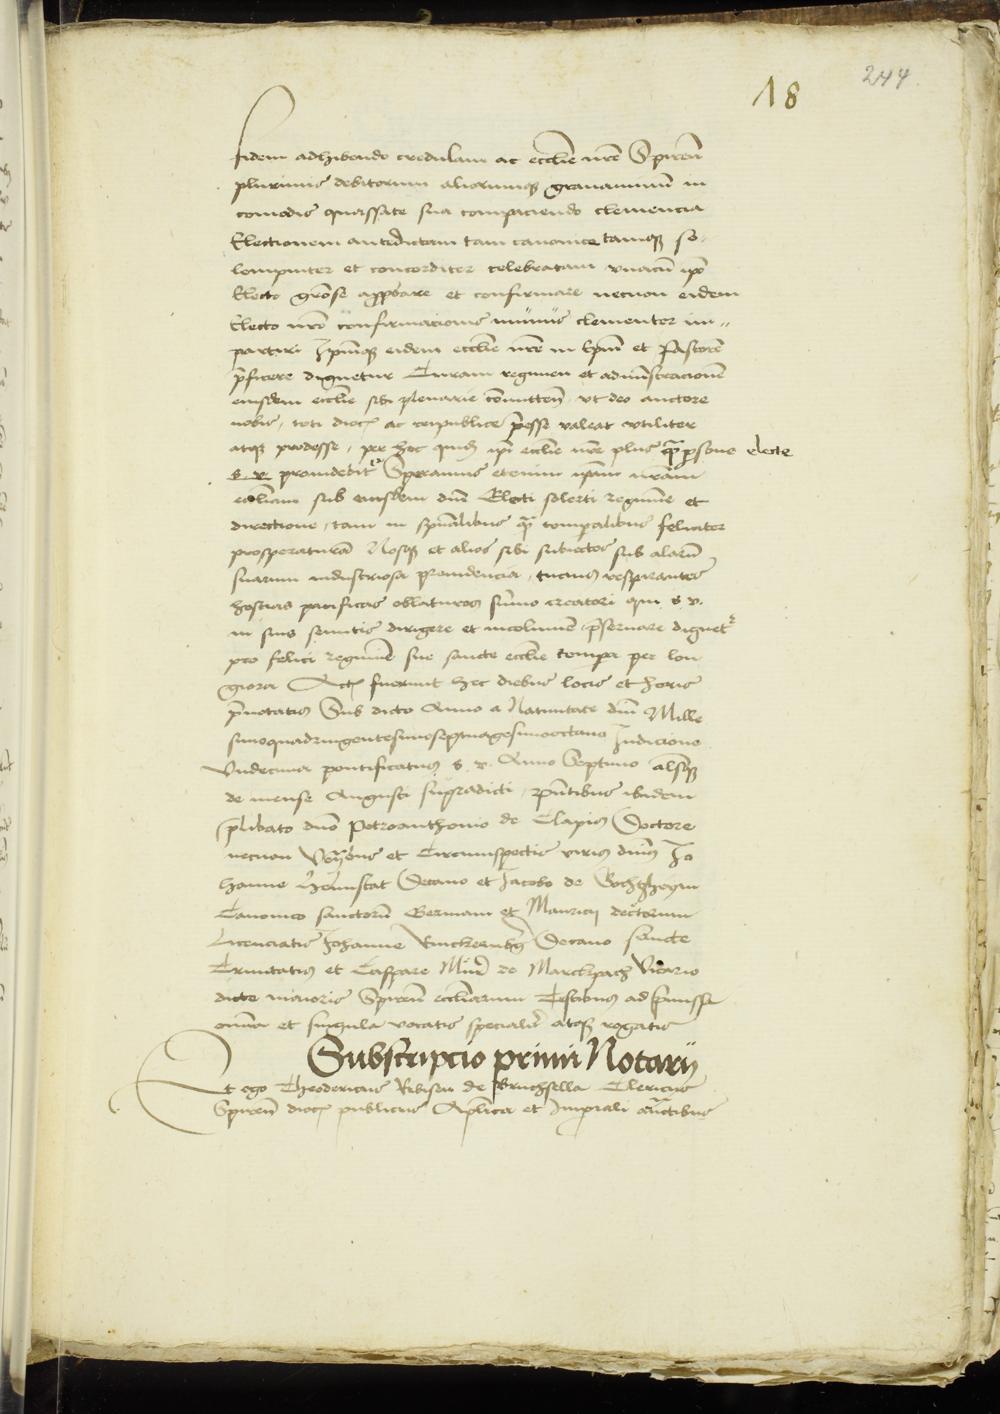 18
244
fidem adhibendo credulam ac ecclie nre Spiren
plurimis debitorum aliorumq grauaminum in
comodis quassate sua compaciendo clemencia
Electionem antedictam tam canonice tamq so
lempniter et concorditer celebratam vnacu ipo
Electo grose approbare et confirmare necnon eidem
Electo nro confirmacionis munus clementer im
partiri Ipmq eidem ecclie nre in Epm et Pastore
pficere dignetur Curam regimen et administracione
eiusdem ecclie sibi plenarie comitten vt deo auctore
nobis, toti dioc ac reipublice peesse valeat vtiliter
atq prodesse, per hoc quid ipi ecclie nre plus qua psone electe
s. v. prouidebitr Speramus etenim ipam nram
eccliam sub eiusdem dni Electi solerti regimine et
directione, tam in spualibus qua temporalibus feliciter
prosperatura Nosq et alios sibi subiectos sub alaru
suarum industriosa prouidencia, tucius respirantes
hostias pacificas oblaturos sumo creatori qui s. v.
in suis semitis dirigere et incolumem pseruare dignetr
pro felici regimine sue sancte ecclie tempora per lon
giora Acta fuerunt hec diebus locis et horis
pnotatis Sub dicto Anno a Natiuitate dni Mille
simoquadringentesimoseptuagesimooctauo Indicione
Vndecima pontificatus s. v. Anno Septimo alsq
de mense Augusti supradicti, pntibus ibidem
plibato dno Petroanthonio de Clapis Doctore
necnon et Circumspectis viris dnis Jo
hanne Decano et Jacobo de
Canonico sanctoru Germani et Mauricij decretorum
Licenciatis Johanne Decano sancte
Trinitatis et Caspare de Marckpach Vicario
dicte maioris Spiren eccliarum Testibus ad pmissa
omnia et singula vocatis specialir atq rogatis
Subscripcio primi Notarij
Et ego Theodericus de Bruchsella Clericus
Spiren dioc publicus Aplica et Imperiali auctibus